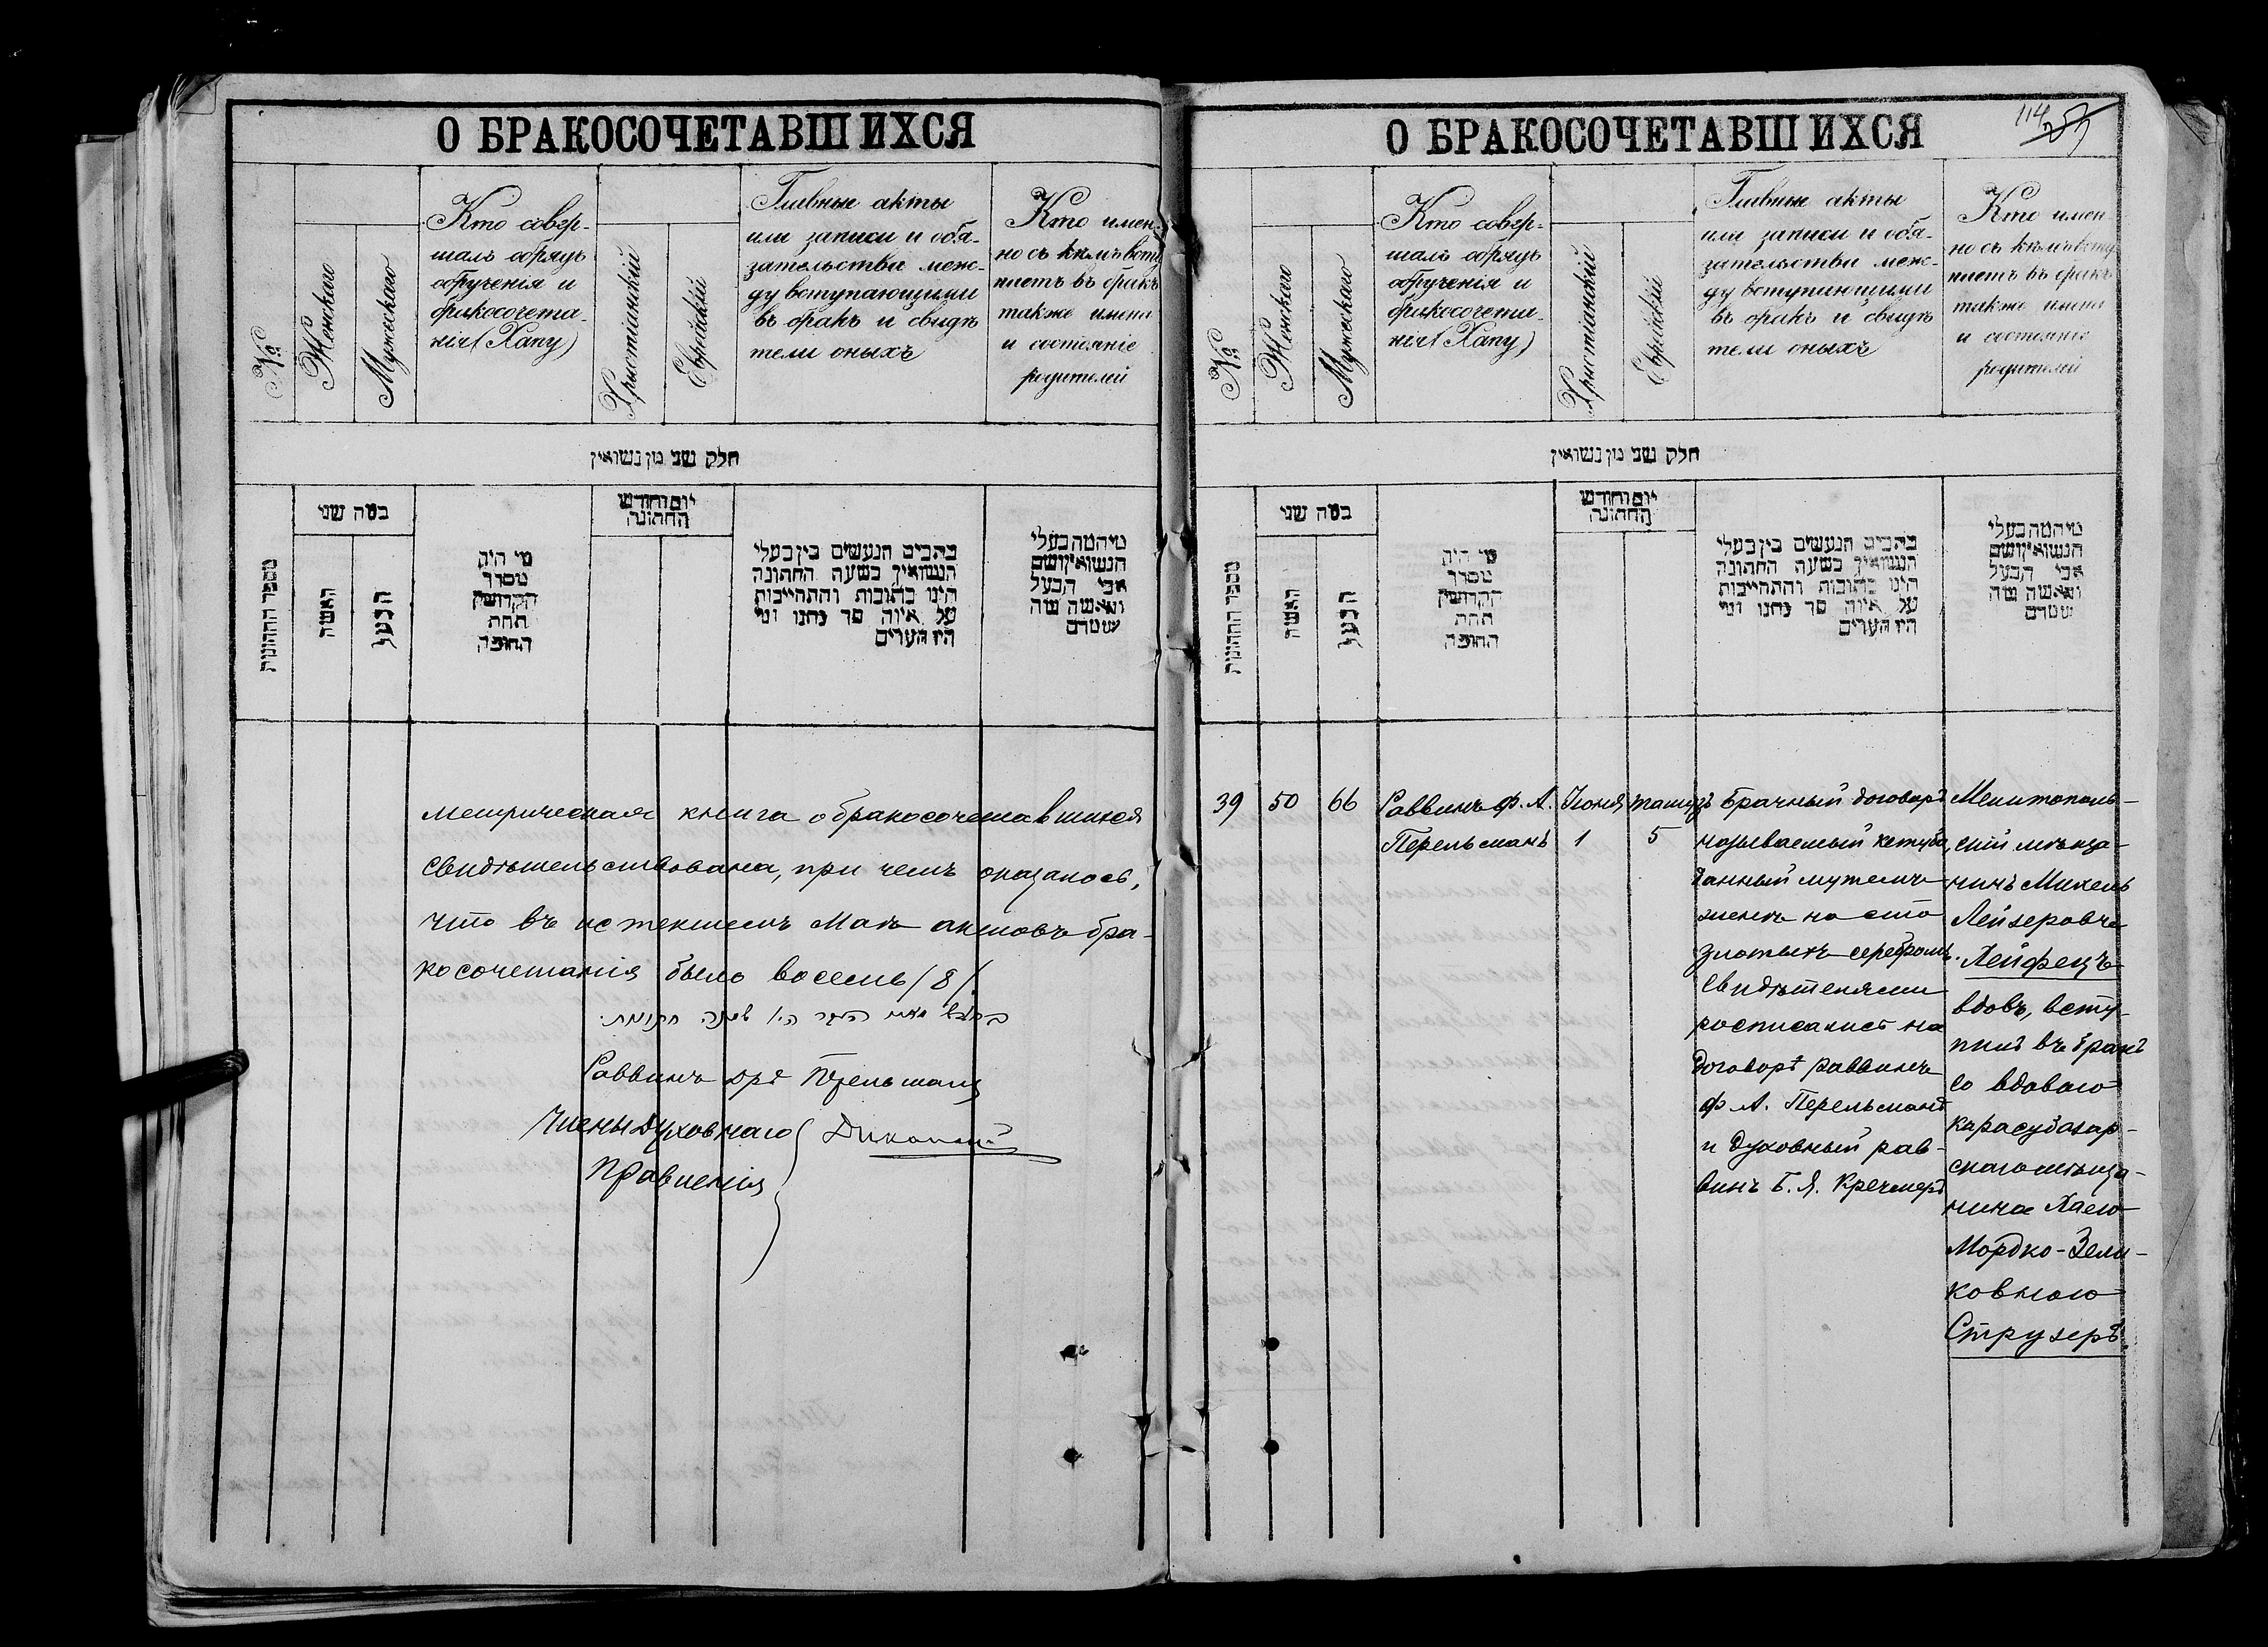 О БРАКОСОЧЕТАВШИХСЯ
№
Женскаго
Мужескаго
Кто совер-
шалъ обрядъ
обрученія и
бракосочета-
нія (Хапу)
Христіанскій
Еврейскій
Главные акты
или записи и обя-
зательства меж-
ду вступающими
въ бракъ и свидѣ
тели оныхъ
Кто имен-
но съ кѣмъ всту
паетъ въ бракъ
также имена
и состояніе
родителей
חלק שני מן נשואין
מספר החתונות
כמה שני
האשה
הבעל
מי היה
מסדר
הקדושין
תחת
החופה
יום וחודש
החתונה
כתבים הנעשים בין בעלי
הנשואין בשעה החתונה
היינו כתובות והתחייבות
על איזה סך נתנו ומי
היו העדים
מי המה בעלי
הנשואין ושם
אבי הבעל
והאשה ומה
שמם
метрическая книга о бракосочетавшихся
свидѣтельствована, при чемъ оказалось,
что въ истекшемъ Маѣ актовъ бра-
косочетанія было восемь /8/.
Раввинъ Перельманъ
Члены Духовнаго
Правленія
114
О БРАКОСОЧЕТАВШИХСЯ
№
Женскаго
Мужескаго
Кто совер-
шалъ обрядъ
обрученія и
бракосочета-
нія (Хапу)
Христіанскій
Еврейскій
Главные акты
или записи и обя-
зательства меж-
ду вступающими
въ бракъ и свидѣ
тели оныхъ
Кто имен
но съ кѣмъ всту
паетъ въ бракъ
также имена
и состояніе
родителей
חלק שני מן נשואין
מספר החתונות
כמה שני
האשה
הבעל
מי היה
מסדר
הקדושין
תחת
החופה
יום וחודש
החתונה
כתבים הנעשים בין בעלי
הנשואין בשעה החתונה
היינו כתובות והתחייבות
על איזה סך נתנו ומי
היו העדים
מי המה בעלי
הנשואין ושם
אבי הבעל
והאשה ומה
שמם
39
50
66
Раввинъ Ф. А.
Перельманъ
Іюня
1
Тамузъ
5
Брачный договоръ
называемый кетуба,
данный мужемъ
женѣ на сто
злотыхъ серебромъ.
Свидѣтелями
росписались на
договорѣ раввинъ
Ф. А. Перельманъ
и духовный рав-
винъ Б. Я. Кречмеръ
Мелитополь-
скій мѣща-
нинъ Михель
Лейзеровъ
Лейфецъ
вдовъ, всту-
пилъ въ бракъ
со вдовою
карасубазар-
скаго мѣща-
нина Хаею
Мордко-Зели-
ковною
Струзеръ.